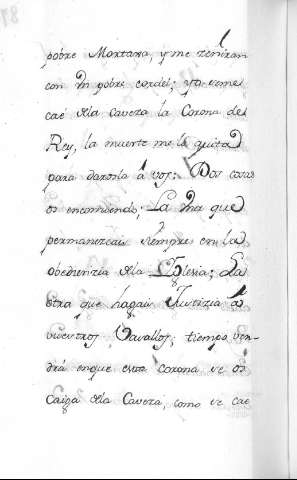 pobre Mortaxa, y me ceñiran
con Vn pobre cordel; ya veme
cae dla caveza la Corona de
Rey, la muerte me la quita
para darosla â vos: Dos cosas
os encomiendo; La Vna que
permanezcais siempre en la
obedienzia dla Yglesia; La
otra que hagais Justizia â
vuestros Vasallos; tiempo ven-
drá enque esta corona se os
Caiga dla Caveza, como se cae